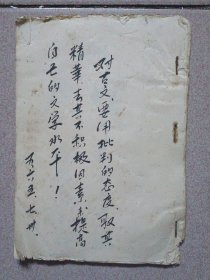 对古文要用批判的态度取其
精华去其不积极因素来提高
自己的文学水平！
一九六五、七、卅